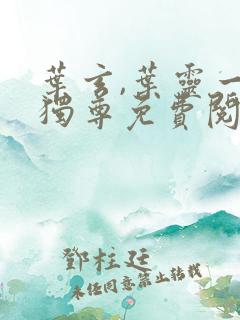 葉玄,葉靈一
獨尊免費閱
鄧柱廷
未經同意禁止轉載